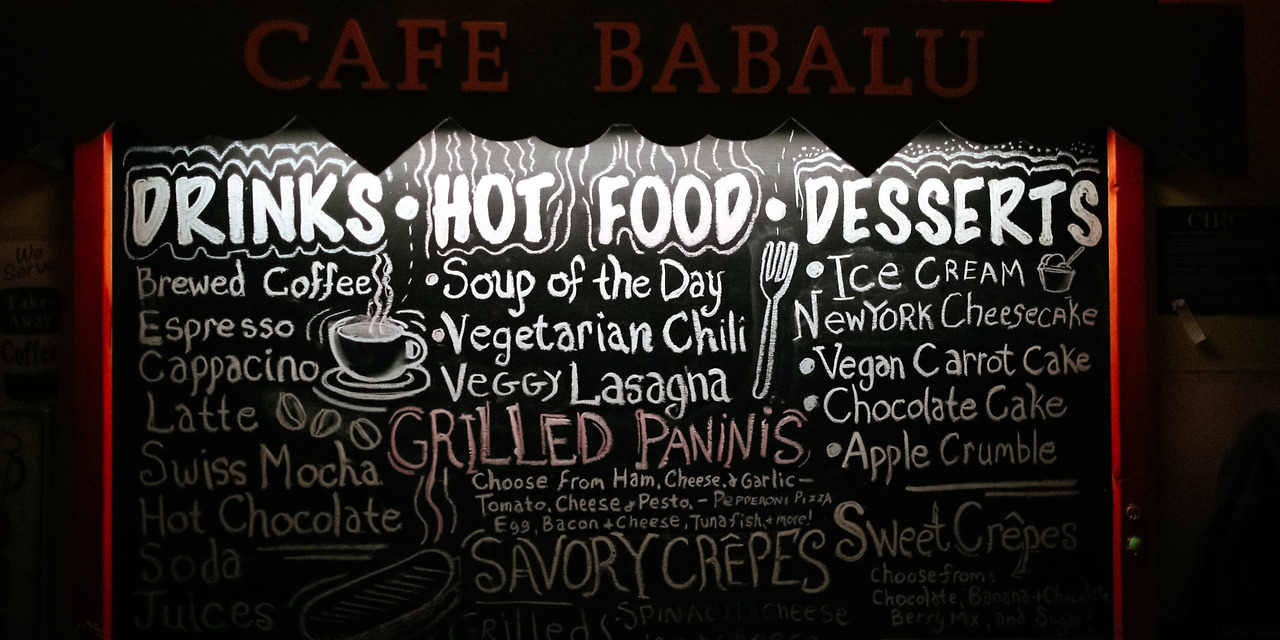 CAFE BABALU
DRINKS • HOT FOOD • DESSERTS
Brewed Coffee
Espresso
Cappacino
Latte
Swiss Mocha
Hot Chocolate
Soda
Juices
• Soup of the Day
• Vegetarian Chili
VEGGY Lasagna
GRILLED PANiNiS
Choose From Ham, Cheese, & Garlic –
Tomato, Cheese & Pesto, – PEPPERONI PIZZA
Egg, Bacon + Cheese, Tunafish, + more!
SAVORY CRÊPES
Grilled
SPINACH + CHEESE
• ICE CREAM
NEWYORK CHEESECAKE
• Vegan Carrot Cake
• Chocolate Cake
• Apple Crumble
Sweet Crêpes
Choose from:
Chocolate, Banana + Chocolate
Berry Mix, and Sugar
We
Serve
Take
Away
Coffee